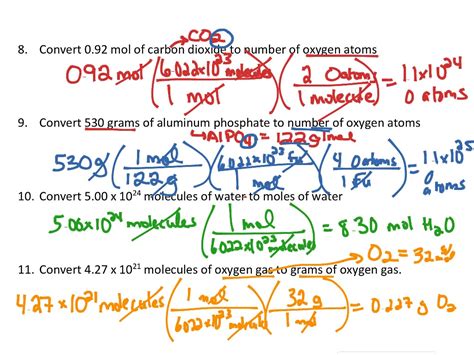 CO2
8. Convert 0.92 mol of carbon dioxide to number of oxygen atoms
0.92 mol (6.022x10^23 molecules / 1 mol) (2 O atoms / 1 molecule) = 1.1x10^24 O atoms
9. Convert 530 grams of aluminum phosphate to number of oxygen atoms
AlPO4 = 122g/mol
530g (1 mol / 122g) (6.022x10^23 FU / 1 mol) (4 O atoms / 1 FU) = 1.1x10^25 O atoms
10. Convert 5.00 x 10^24 molecules of water to moles of water
5.00x10^24 molecules (1 mol / 6.022x10^23 molecules) = 8.30 mol H2O
O2 = 32g/mol
11. Convert 4.27 x 10^21 molecules of oxygen gas to grams of oxygen gas.
4.27x10^21 molecules (1 mol / 6.022x10^23 molecules) (32g / 1 mol) = 0.227g O2